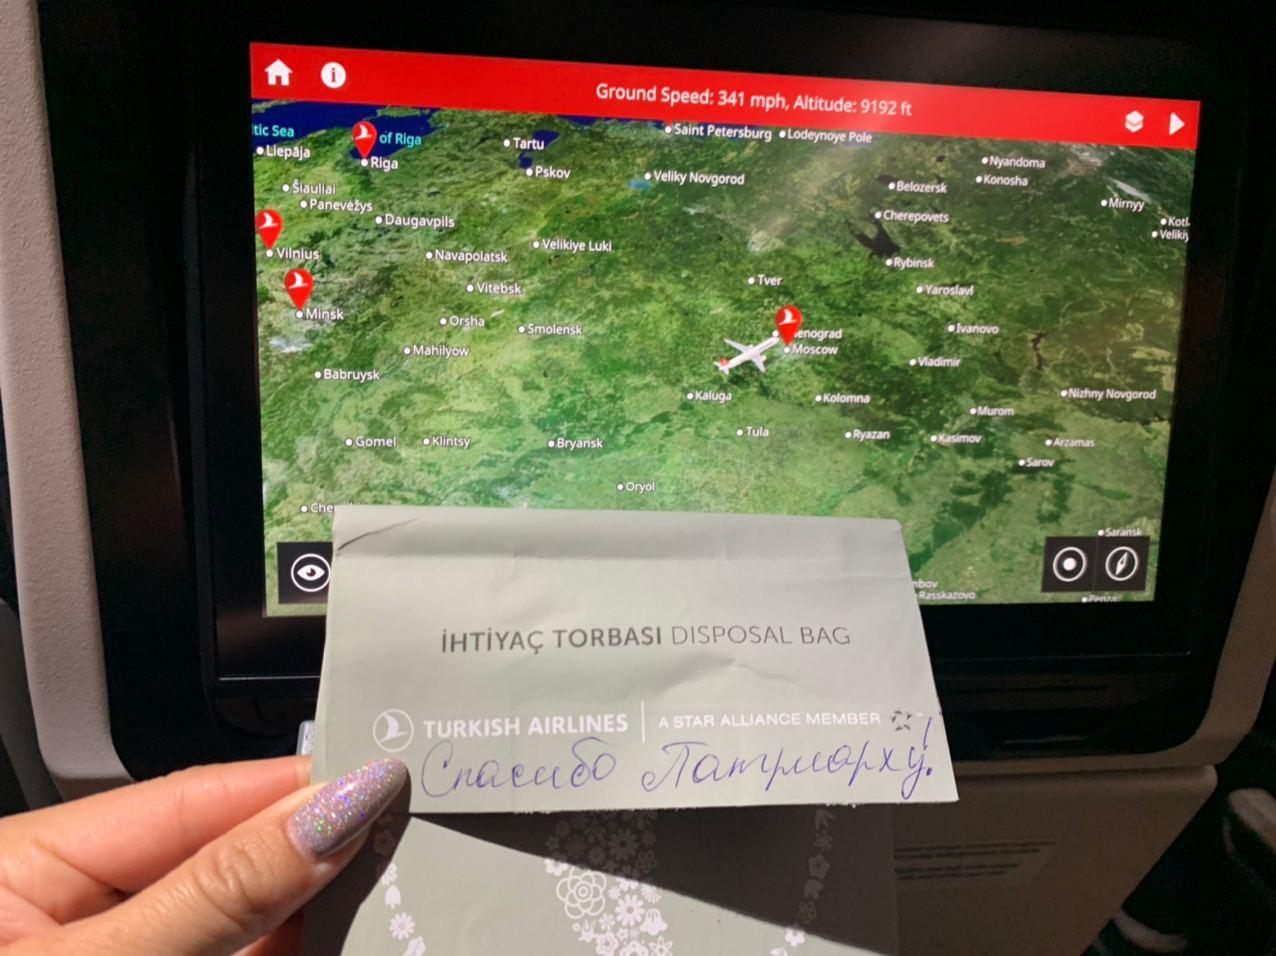 Ground Speed: 341 mph, Altitude: 9192 ft
tic Sea
of Riga
Liepāja
Riga
Tartu
Saint Petersburg
Lodeynoye Pole
Pskov
Veliky Novgorod
Nyandoma
Konosha
Belozersk
Šiauliai
Panevėžys
Mirnyy
Daugavpils
Cherepovets
Kotl
Veliki
Velikiye Luki
Vilnius
Navapolatsk
Rybinsk
Tver
Vitebsk
Yaroslavl
Minsk
Orsha
Smolensk
Ivanovo
enograd
Moscow
Mahilyow
Vladimir
Babruysk
Kaluga
Kolomna
Nizhny Novgorod
Murom
Gomel
Klintsy
Bryansk
Tula
Ryazan
Kasimov
Arzamas
Sarov
Oryol
Che
Saransk
mbov
Rasskazovo
Penza
İHTİYAÇ TORBASI DISPOSAL BAG
TURKISH AIRLINES | A STAR ALLIANCE MEMBER
Спасибо Патриарху!